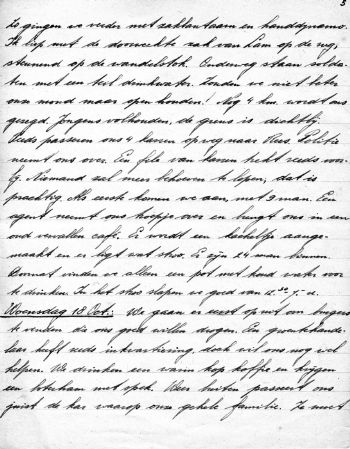 3
Zo gingen we verder met zaklantaarn en handdynamo.
Ik liep met de doorweekte zak van Lam op de rug,
steunend op de wandelstok. Onderweg staan solda-
ten met een teil drinkwater. Zouden we niet beter
onze mond maar open houden! Nog 4 km. wordt ons
gezegd. Jongens volhouden, de grens is dichtbij.
Reeds passeren ons 4 karren op weg naar Politie
neemt ons over. Een file van karren trekt reeds voor-
bij. Niemand zal meer behoeven te lopen, dat is
prachtig. Als eerste komen we aan, met 9 man. Een
agent neemt ons hoopje over en brengt ons in een
oud vervallen café. Er wordt een kacheltje aange-
maakt en er ligt wat stroo. Er zijn 24 man binnen.
Vooraf vinden we allen een pot met koud water voor
te drinken. In het stroo slapen we goed van
Woensdag 18 Oct.: We gaan er eerst op uit om burgers
te vinden die ons goed willen drogen. Een groentehande-
laar heeft reeds inkwartiering, doch wil ons nog wel
helpen. We drinken een warm kop koffie en krijgen
een boterham met spek. Weer buiten passeert ons
juist de kar waarop onze gehele familie. Ze moet